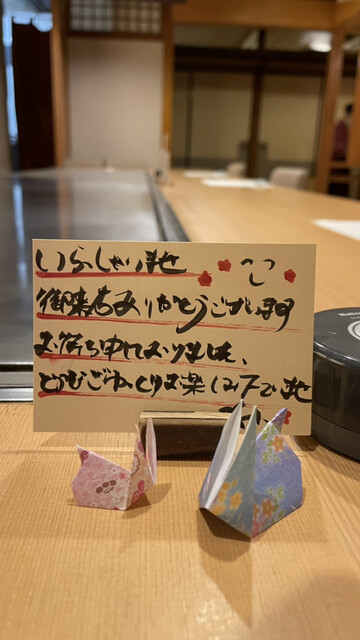 いらっしゃい地
御来店ありがとうございます
お待ち申しておりました、
どうぞごゆっくりお楽しみ下さい地